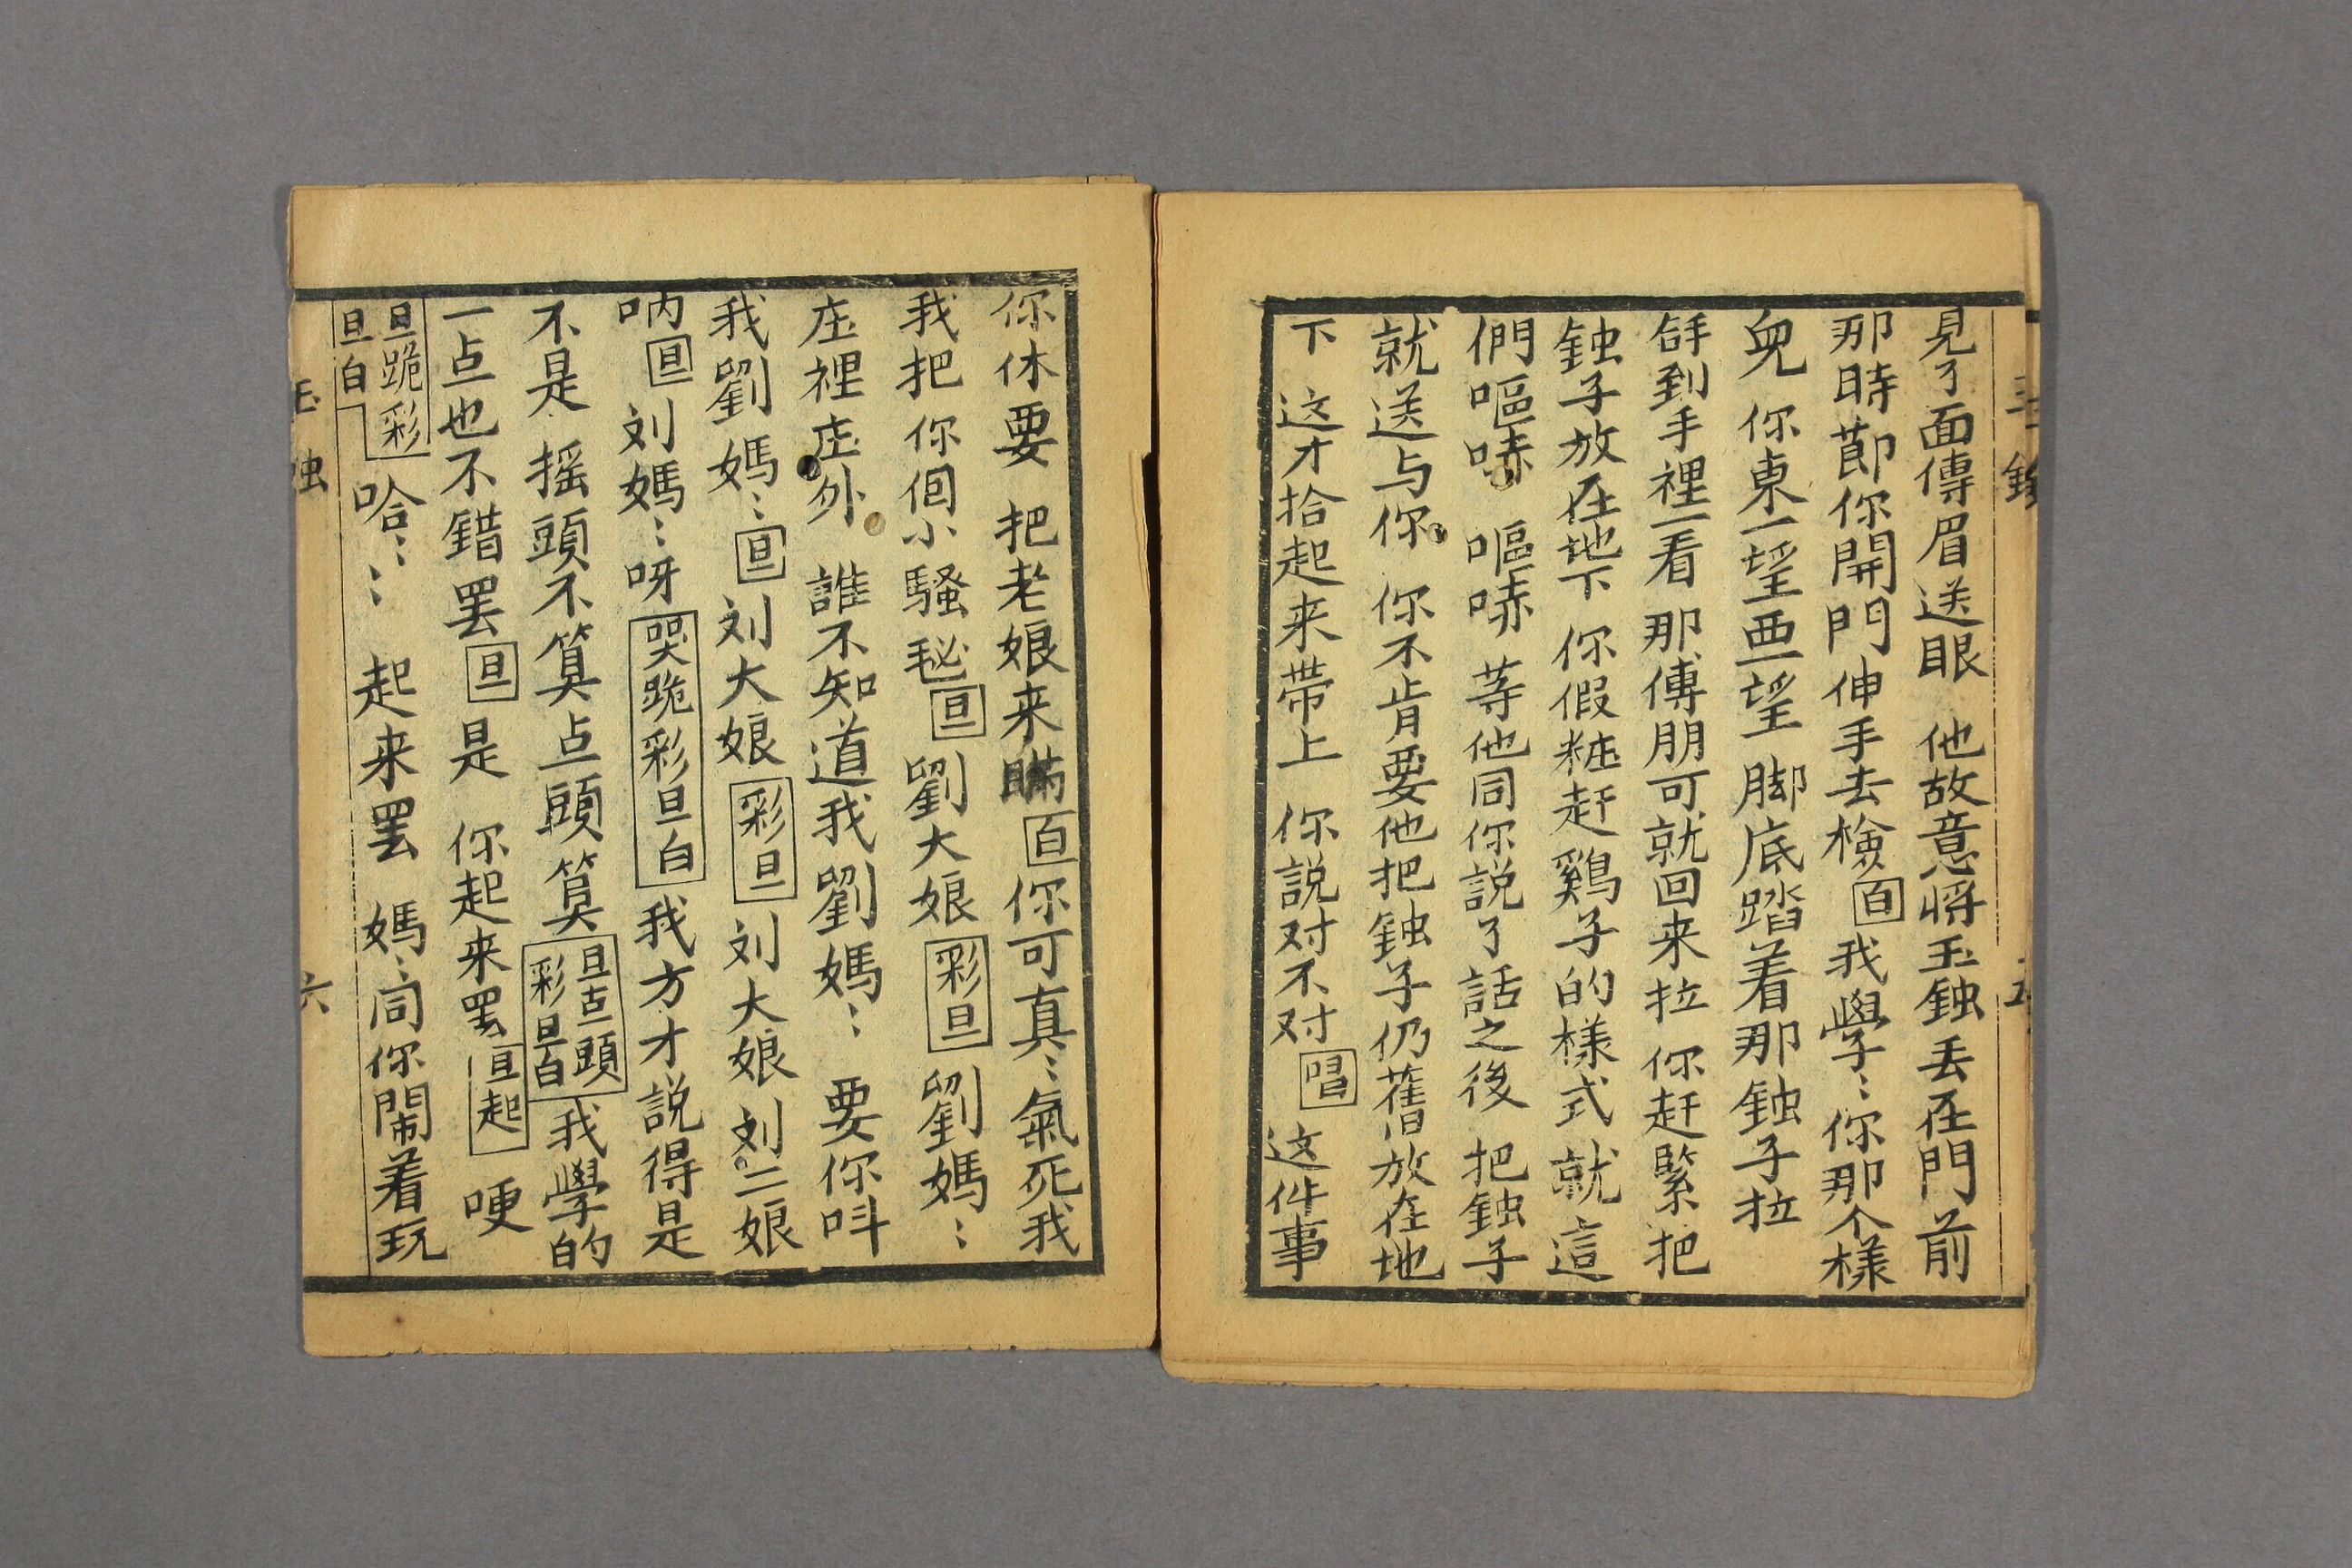 見了面傳眉送眼 他故意將玉䥐丢在門前
那時節你開門伸手去檢 白 我學〻你那个樣
兒 你東一望西一望 脚底踏着那䥐子拉
拿到手裡一看 那傅朋可就回来拉 你赶緊把
䥐子放在地下 你假粧赶鷄子的樣式 就這
們嘔哧 嘔哧 等他同你説了話之後 把䥐子
就送与你 你不肯要他把䥐子仍舊放在地
下 这才拾起来帶上 你説对不对 唱 这件事
你休要 把老娘来瞞 白 你可真〻氣死我
我把你個小騷毴 旦 劉大娘 彩旦 劉媽〻
庄裡庄外 誰不知道我劉媽〻 要你呌
我劉媽〻 旦 刘大娘 彩旦 刘大娘 刘二娘
呐 旦 刘媽〻呀 哭跪彩旦白 我方才説得是
不是 摇頭不算点頭算 旦点頭彩旦白 我學的
一点也不錯罢 旦 是 你起来罢 旦起 哽
旦跪彩旦白 哈〻〻 起来罢 媽〻同你鬧着玩
六